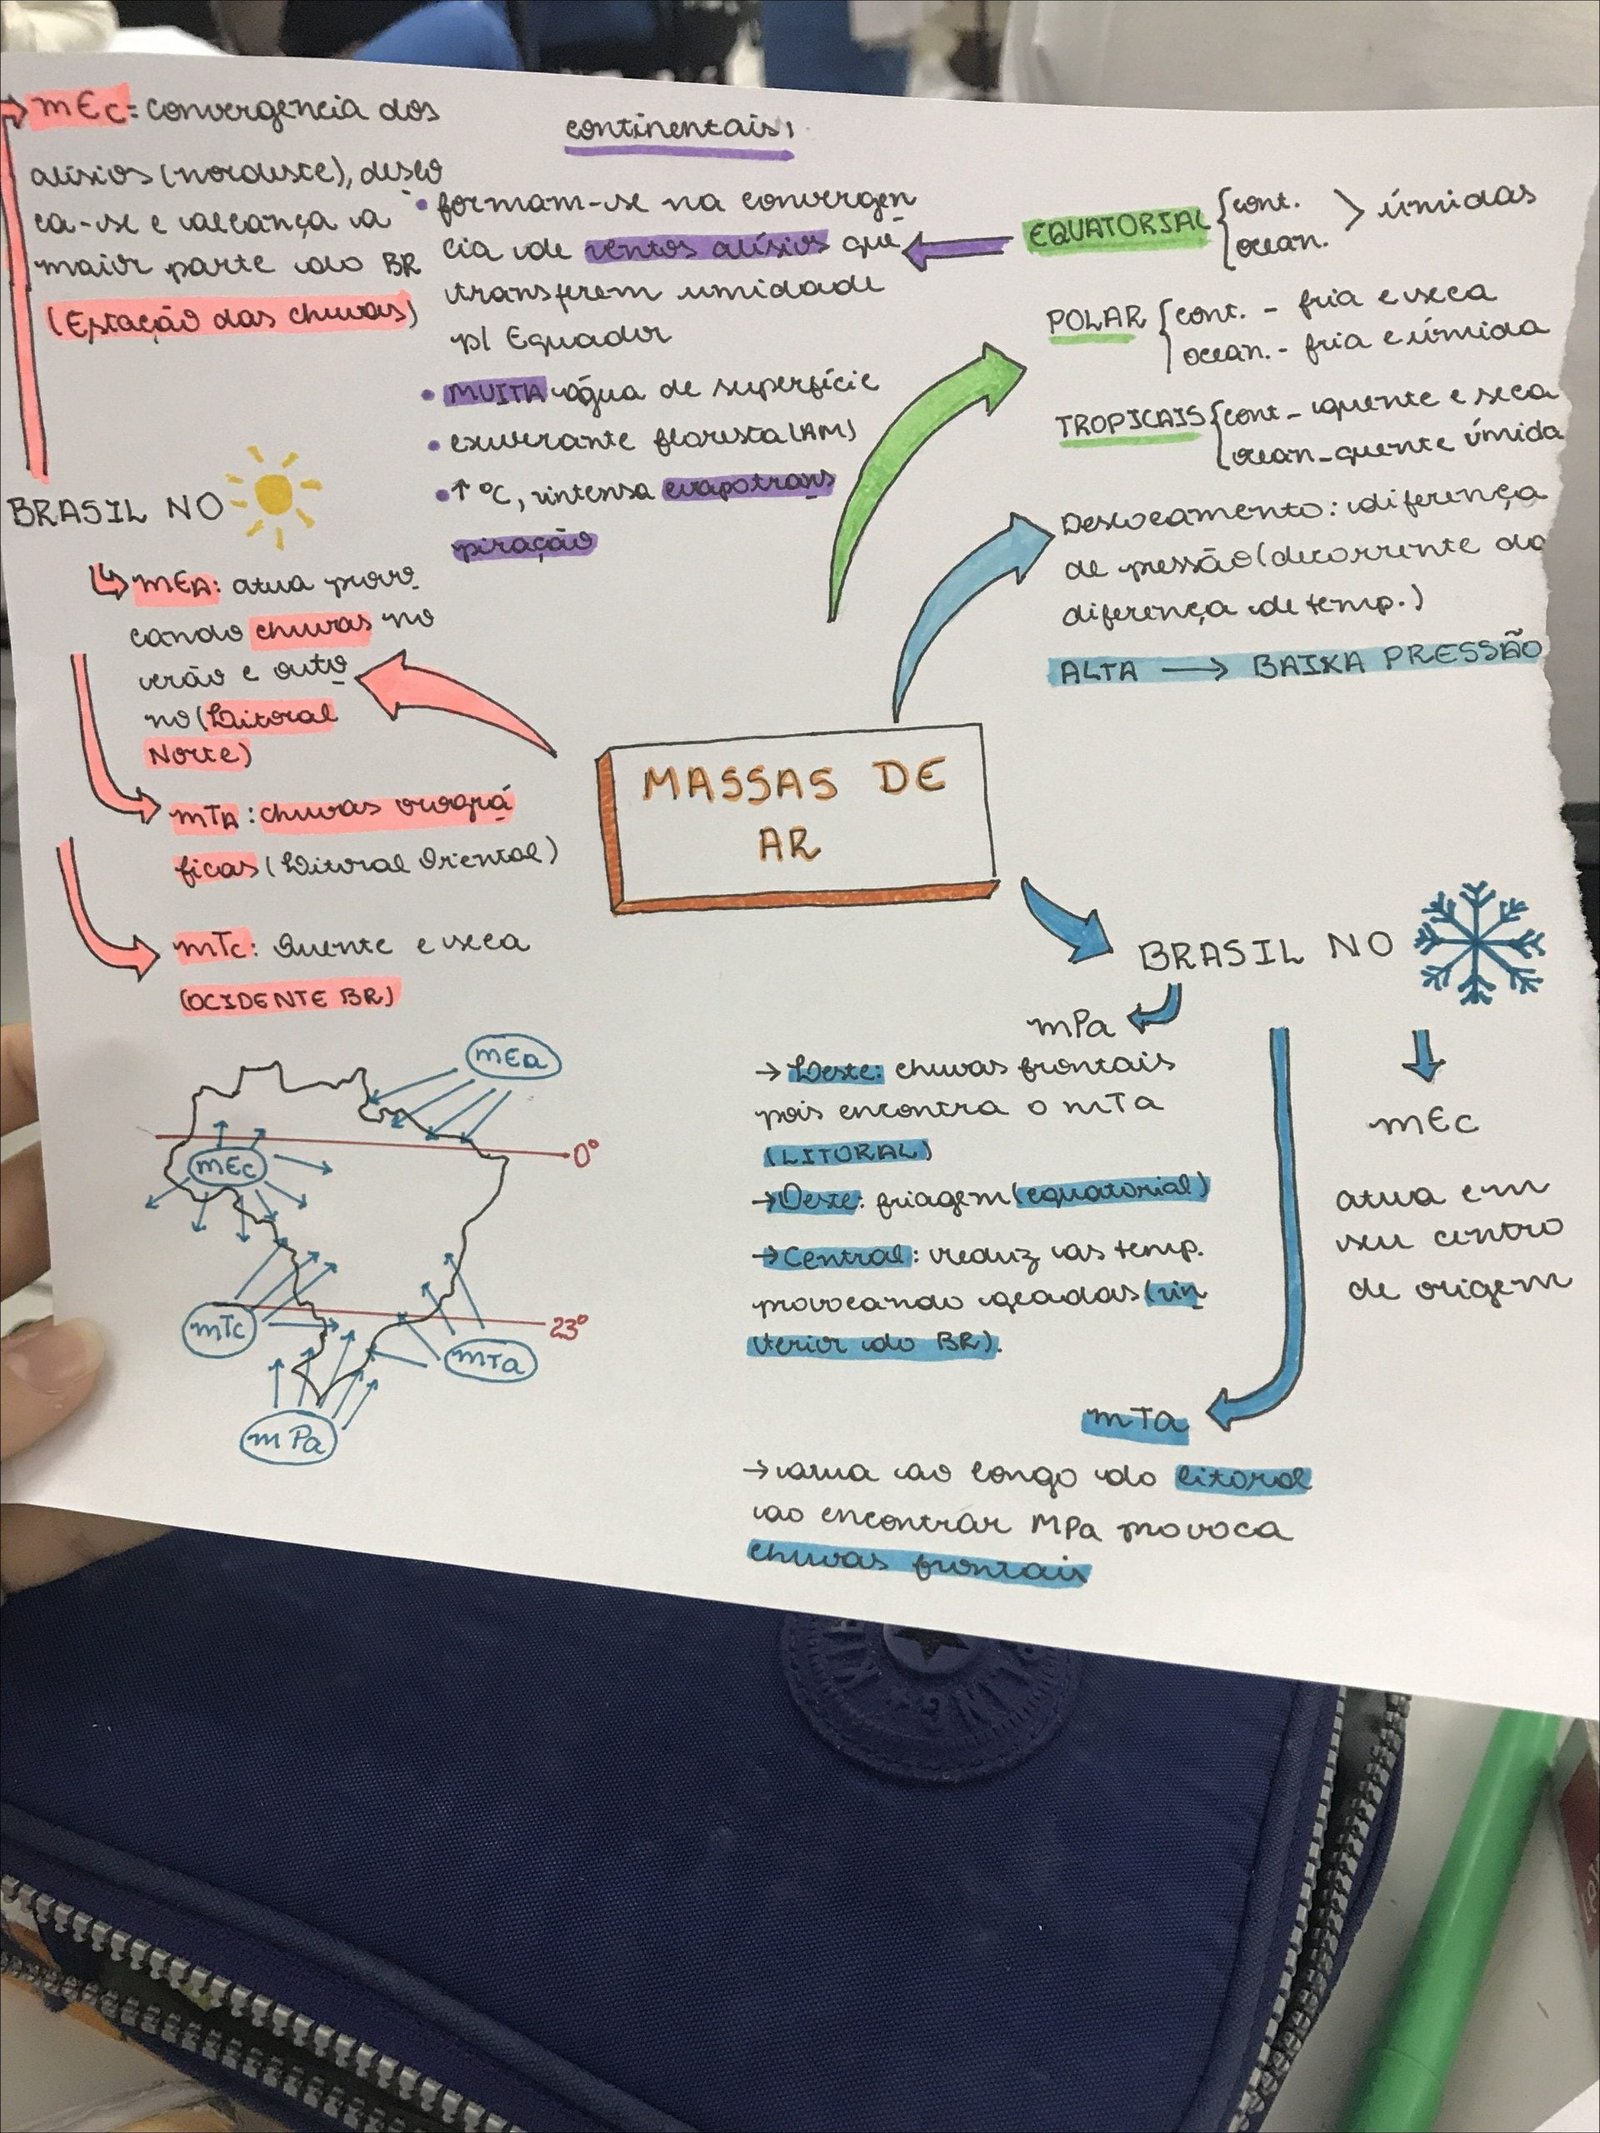 MASSAS DE
AR
EQUATORIAL { cont.
ocean. > úmidas
POLAR { cont. - fria e seca
ocean. - fria e úmida
TROPICAIS { cont - quente e seca
ocean - quente úmida
continentais:
• formam-se na convergen
cia de ventos alísios que
transferem umidade
p/ Equador
• MUITA água de superfície
• exuberante floresta (AM)
• ↑ °C, intensa evapotrans
piração
Deslocamento: diferença
de pressão (decorrente da
diferença de temp.)
ALTA → BAIXA PRESSÃO
BRASIL NO
mEc: convergencia dos
alísios (nordeste), deslo
ca-se e alcança a
maior parte do BR
(Estação das chuvas)
mEA: atua provo
cando chuvas no
verão e outo
no (Litoral
Norte)
mTA: chuvas orográ
ficas (Litoral Oriental)
mTc: Quente e seca
(OCIDENTE BR)
mEa
0°
mEc
mTc
23°
mTa
mPa
BRASIL NO
mPa
→ Leste: chuvas frontais
pois encontra o mTa
(LITORAL)
→ Oeste: friagem (equatorial)
→ Central: reduz as temp.
provocando geadas (in
terior do BR).
mEc
atua em
seu centro
de origem
mTa
→ atua ao longo do litoral
ao encontrar MPa provoca
chuvas frontais